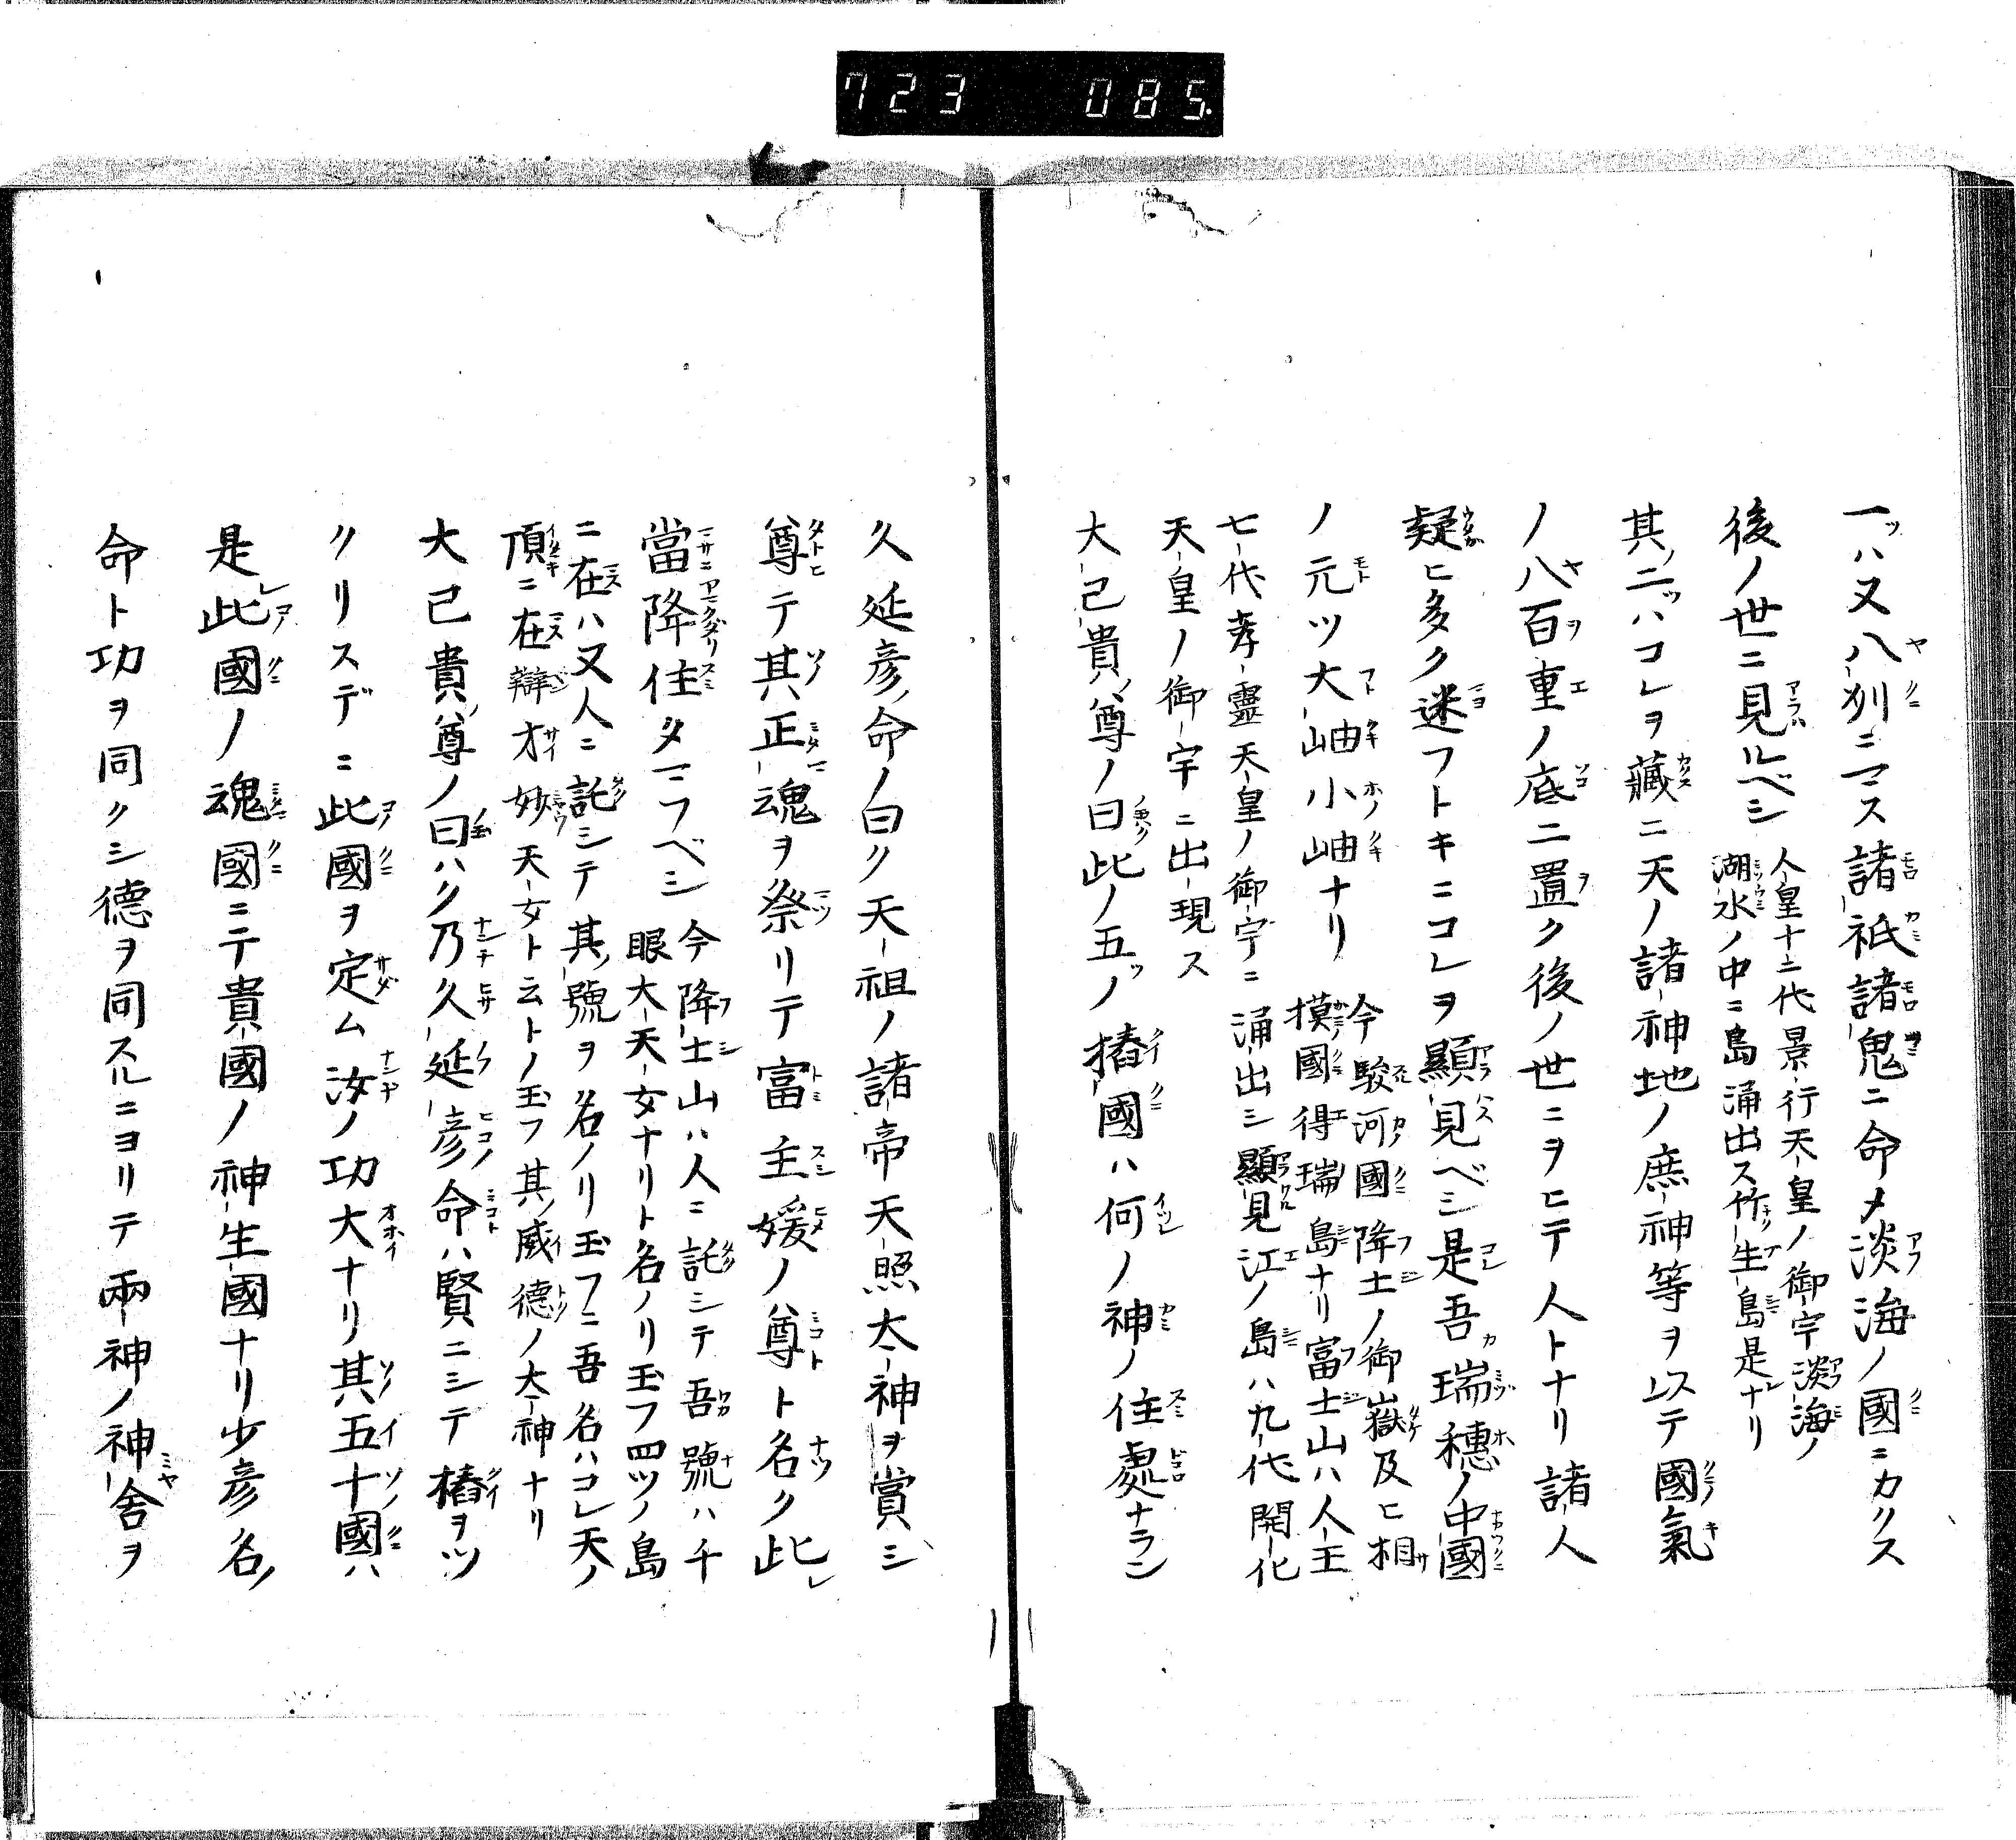 723 085.
一ツハ又八州ニマス諸祇諸鬼ニ命メ淡海ノ國ニカクス
後ノ世ニ見ルベシ
人皇十二代景行天皇ノ御宇淡海ノ
湖水ノ中ニ島涌出ス竹生島是ナリ
其ノ二ツハコレヲ藏ニ天ノ諸神地ノ庶神等ヲシテ國氣
ノ八百重ノ底ニ置ク後ノ世ニヲヒテ人トナリ諸人
疑ヒ多ク迷フトキニコレヲ顯見ベシ是吾瑞穗ノ中國
ノ元ツ大岫小岫ナリ
今駿河國降士ノ御嶽及ヒ相
摸國得瑞島ナリ富士山ハ人王
七代孝靈天皇ノ御宇ニ涌出シ顯見江ノ島ハ九代開化
天皇ノ御宇ニ出現ス
大己貴ノ尊ノ曰此ノ五ツノ樁國ハ何ノ神ノ住處ナラン
久延彦ノ命ノ曰ク天祖ノ諸帝天照太神ヲ賞シ
尊テ其正魂ヲ祭リテ富主媛ノ尊ト名ク此レ
當降住タマフベシ
今降士山ハ人ニ託シテ吾號ハ千
眼大天女ナリト名ノリ玉フ四ツノ島
ニ在ハ又人ニ託シテ其ノ號ヲ名ノリ玉フニ吾名ハコレ天ノ
頂ニ在辯才妙天女ト云トノ玉フ其ノ威德ノ大神ナリ
大己貴ノ尊ノ曰ハク乃久延彦命ハ賢ニシテ樁ヲツ
クリスデニ此國ヲ定ム汝ノ功大ナリ其五十國ハ
是レ此國ノ魂國ニテ貴國ノ神生國ナリ少彦名ノ
命ト功ヲ同クシ德ヲ同スルニヨリテ兩神ノ神舍ヲ